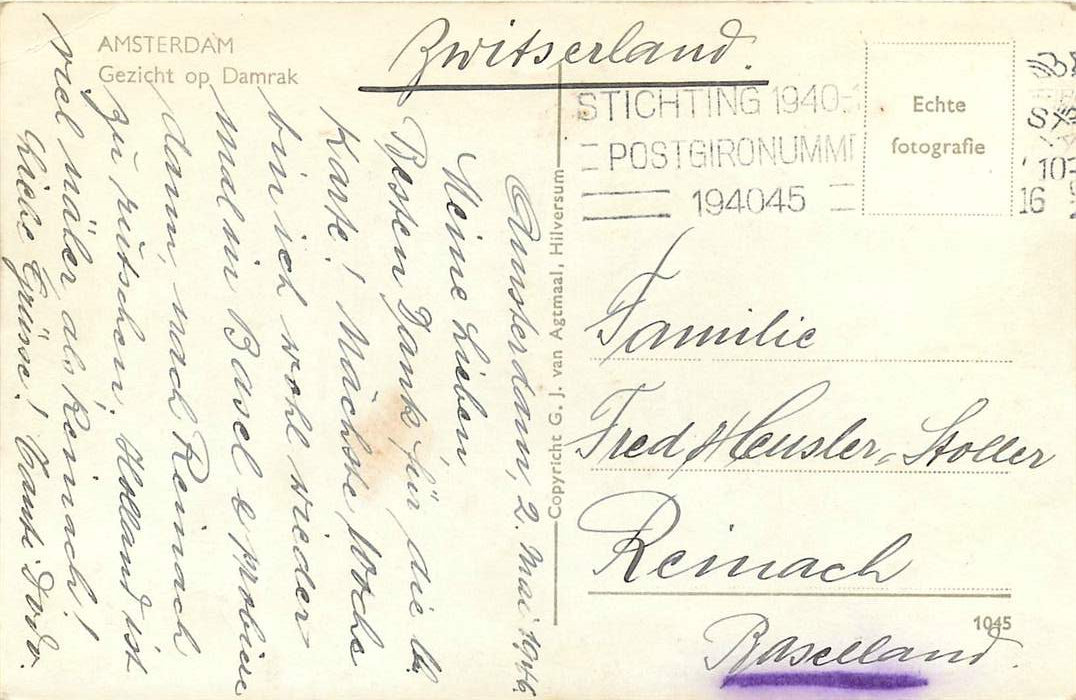 AMSTERDAM
Gezicht op Damrak
Zwitserland.
STICHTING 1940-
POSTGIRONUMM
194045
Echte
fotografie
10-
16
Amsterdam, 2. Mai 1946.
Meine Lieben,
Besten Dank für die lb.
Karte! Nächste Woche
bin ich wohl wieder
mal in Basel & probiere
dann, nach Reinach
zu rutschen; Holland ist
viel näher als Reinach!
Liebe Grüsse! Tante Dodo.
Copyright G. J. van Agtmaal, Hilversum
Familie
Fred Heusler-Stoller
Reinach
1045
Baselland.